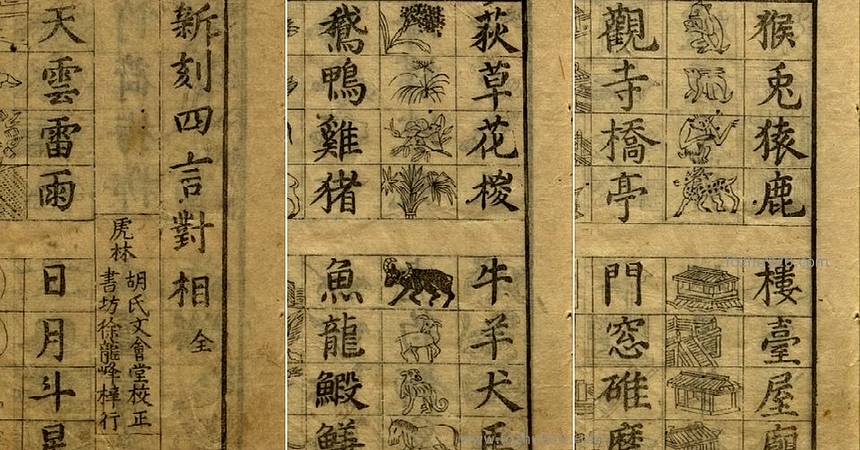 新刻四言對相 全
虎林
胡氏文會堂校正
書坊徐龍峰梓行
天雲雷雨
日月斗星
荻草花椶
牛羊犬
鵝鴨雞猪
魚龍鰕
猴兎猿鹿
樓臺屋廟
觀寺橋亭
門窓碓磨